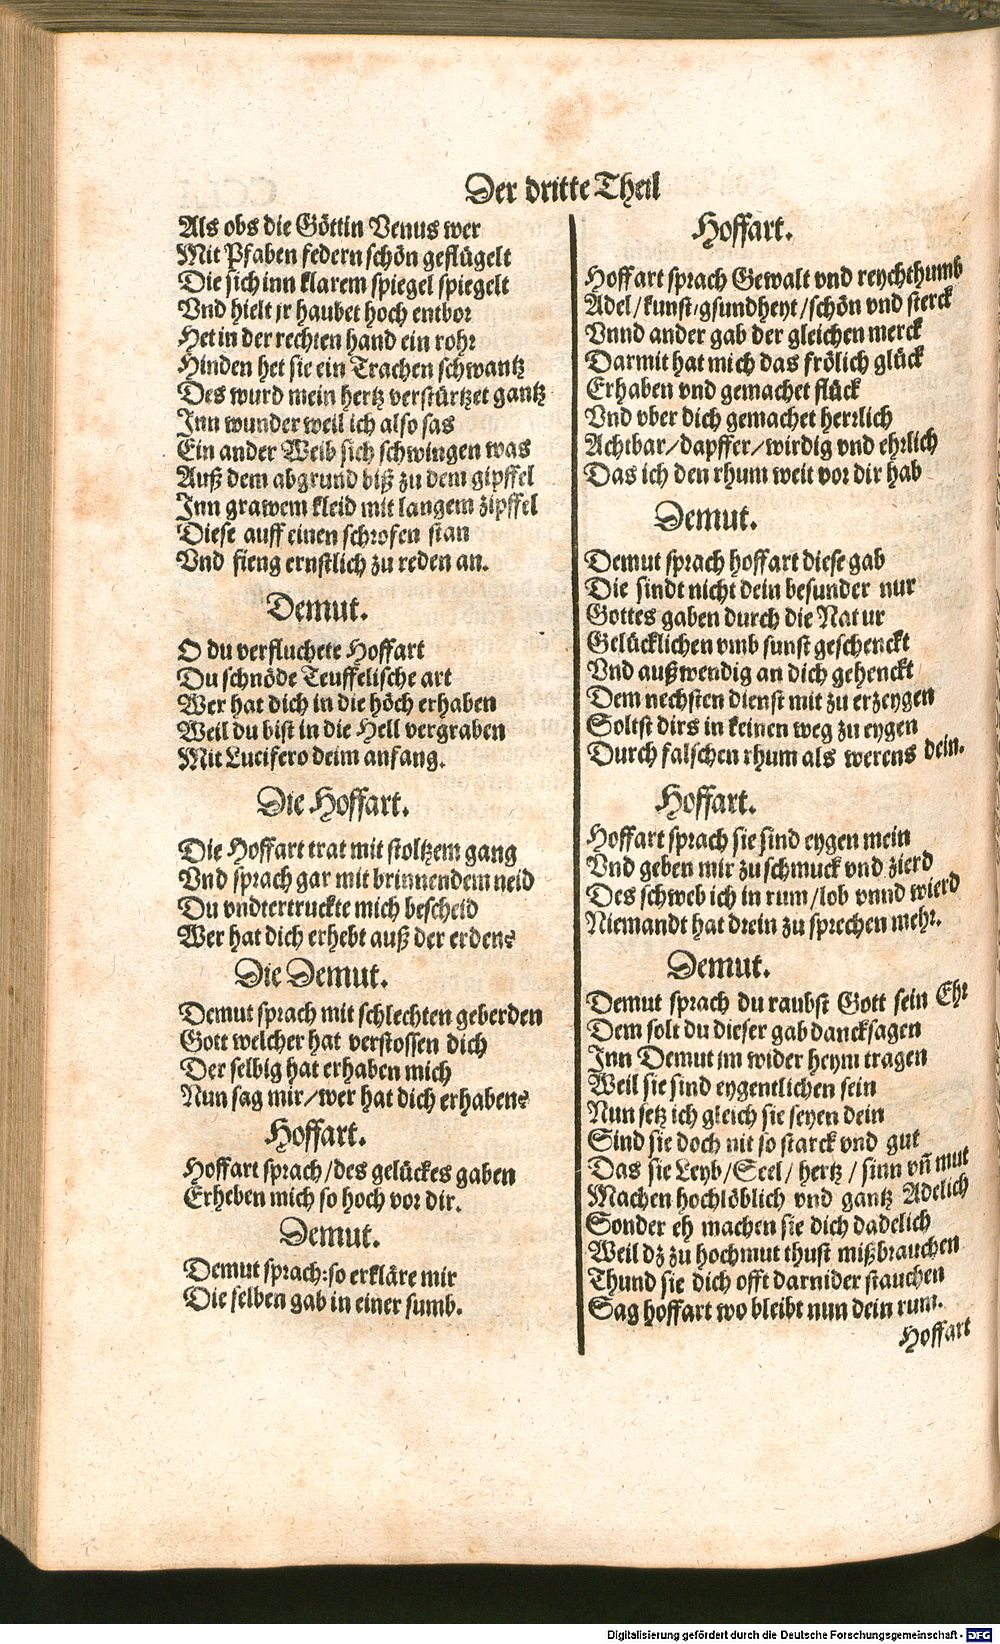 Der dritte Theil
Als obs die Göttin Venus wer
Mit Pfaben federn schön geflügelt
Die sich inn klarem spiegel spiegelt
Vnd hielt jr haubet hoch entbor
Het in der rechten hand ein rohr
Hinden het sie ein Trachen schwantz
Des wurd mein hertz verstürtzet gantz
Inn wunder weil ich also sas
Ein ander Weib sich schwingen was
Auß dem abgrund biß zu dem gipffel
Inn grawem kleid mit langem zipffel
Diese auff einen schrofen stan
Vnd fieng ernstlich zu reden an.
Demut.
O du verfluchete Hoffart
Du schnöde Teuffelische art
Wer hat dich in die höch erhaben
Weil du bist in die Hell vergraben
Mit Lucifero deim anfang.
Die Hoffart.
Die Hoffart trat mit stoltzem gang
Vnd sprach gar mit brinnendem neid
Du vndtertruckte mich bescheid
Wer hat dich erhebt auß der erden?
Die Demut.
Demut sprach mit schlechten geberden
Gott welcher hat verstossen dich
Der selbig hat erhaben mich
Nun sag mir/wer hat dich erhaben?
Hoffart.
Hoffart sprach/des gelückes gaben
Erheben mich so hoch vor dir.
Demut.
Demut sprach:so erkläre mir
Die selben gab in einer sumb.
Hoffart.
Hoffart sprach Gewalt vnd reychthumb
Adel/kunst/gsundheyt/schön vnd sterck
Vnnd ander gab der gleichen merck
Darmit hat mich das frölich glück
Erhaben vnd gemachet flück
Vnd vber dich gemachet herrlich
Achtbar/dapffer/wirdig vnd ehrlich
Das ich den rhum weit vor dir hab
Demut.
Demut sprach hoffart diese gab
Die sindt nicht dein besunder nur
Gottes gaben durch die Natur
Gelücklichen vmb sunst geschenckt
Vnd außwendig an dich gehenckt
Dem nechsten dienst mit zu erzeygen
Soltst dirs in keinen weg zu eygen
Durch falschen rhum als werens dein.
Hoffart.
Hoffart sprach sie sind eygen mein
Vnd geben mir zu schmuck vnd zierd
Des schweb ich in rum/lob vnnd wierd
Niemandt hat drein zu sprechen mehr.
Demut.
Demut sprach du raubst Gott sein Ehr
Dem solt du dieser gab dancksagen
Inn Demut im wider heym tragen
Weil sie sind eygentlichen sein
Nun setz ich gleich sie seyen dein
Sind sie doch nit so starck vnd gut
Das sie Leyb/Seel/hertz/sinn vñ mut
Machen hochlöblich vnd gantz Adelich
Sonder eh machen sie dich dadelich
Weil dz zu hochmut thust mißbrauchen
Thund sie dich offt darnider stauchen
Sag hoffart wo bleibt nun dein rum.
Hoffart
Digitalisierung gefördert durch die Deutsche Forschungsgemeinschaft - DFG